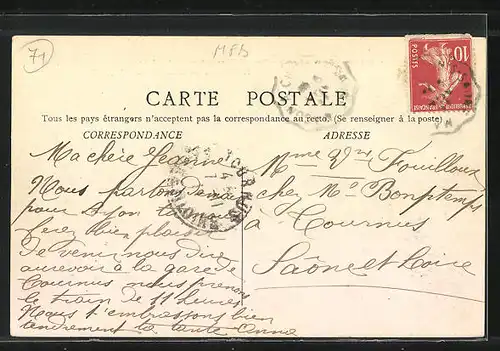 71
MFD
10
POSTES
CARTE POSTALE
Tous les pays étrangers n'acceptent pas la correspondance au recto. (Se renseigner à la poste)
CORRESPONDANCE
ADRESSE
Ma chère Jeanne
Nous partons demain
pour Lyon
ferez bien plaisir
De venir nous dire
au revoir à la gare de
Tournus nous prenons
le train de 11 heures
Nous t'embrassons bien
tendrement ta tante Anna
Mme Vve Fouilloux
chez Mr Bonptemps
à Tournus
Saône et Loire
TOURNUS